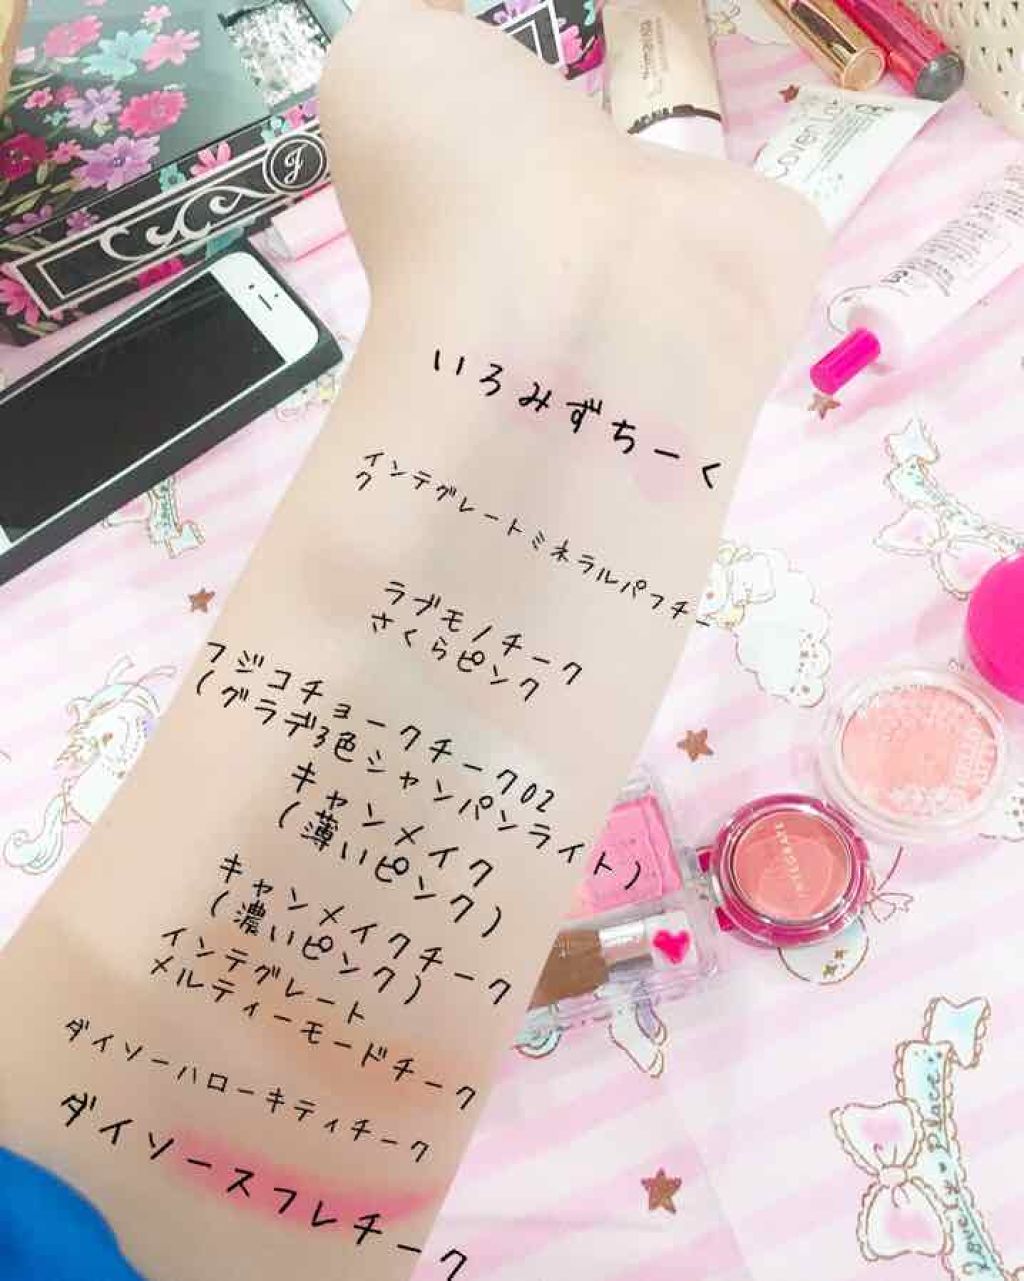 いろみずちーく
インテグレートミネラルパフチー
ク
ラブモノチーク
さくらピンク
フジコチョークチーク02
(グラデ3色シャンパンライト)
キャンメイク
(薄いピンク)
キャンメイクチーク
(濃いピンク)
インテグレート
メルティーモードチーク
ダイソーハローキティチーク
ダイソースフレチーク
J
INTEGRATE
Lovely Place